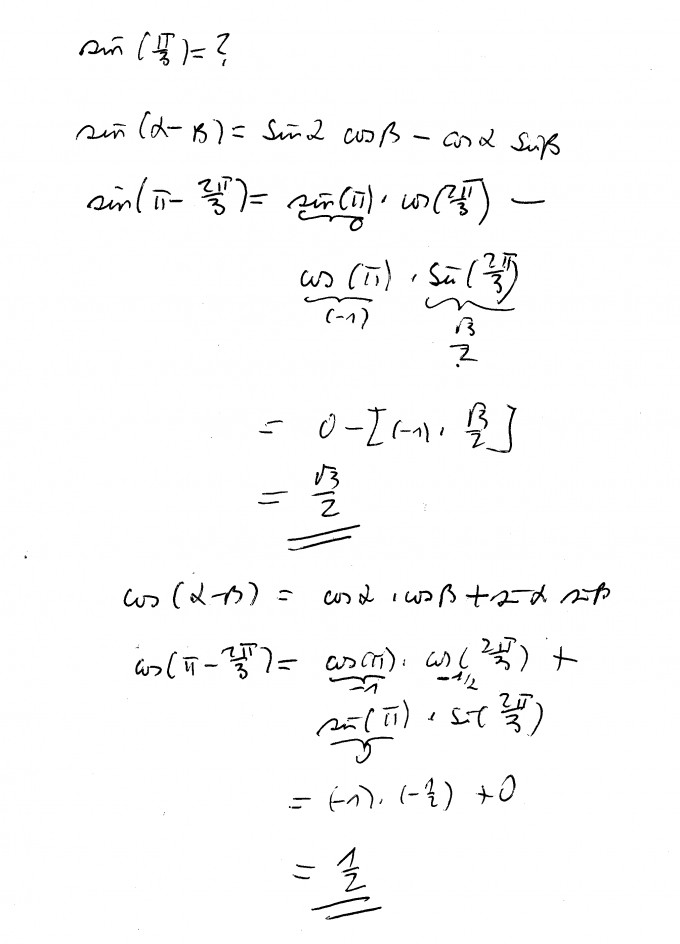 sin (π/3) = ?
sin (α - β) = sin α cos β - cos α sin β
sin(π - 2π/3) = sin(π) · cos(2π/3) -
0
cos (π) · sin (2π/3)
(-1) √3/2
= 0 - [(-1) · √3/2]
= √3/2
cos (α - β) = cos α · cos β + sin α sin β
cos(π - 2π/3) = cos(π) · cos(2π/3) +
-1 -1/2
sin(π) · sin(2π/3)
0
= (-1) · (-1/2) + 0
= 1/2